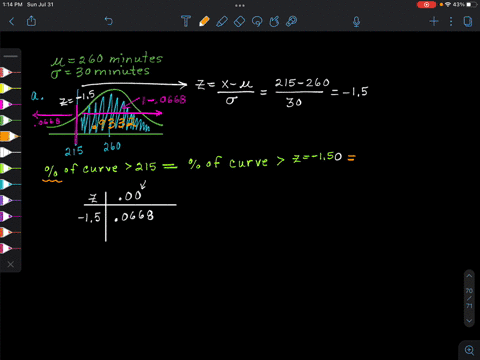 1:14 PM Sun Jul 31
43%
μ = 260 minutes
σ = 30 minutes
a.
z = -1.5
z = x-μ/σ = 215-260/30 = -1.5
1-.0668
.0668
.9332
215 260
% of curve > 215 = % of curve > z = -1.50 =
z .00
-1.5 .0668
70
/
71